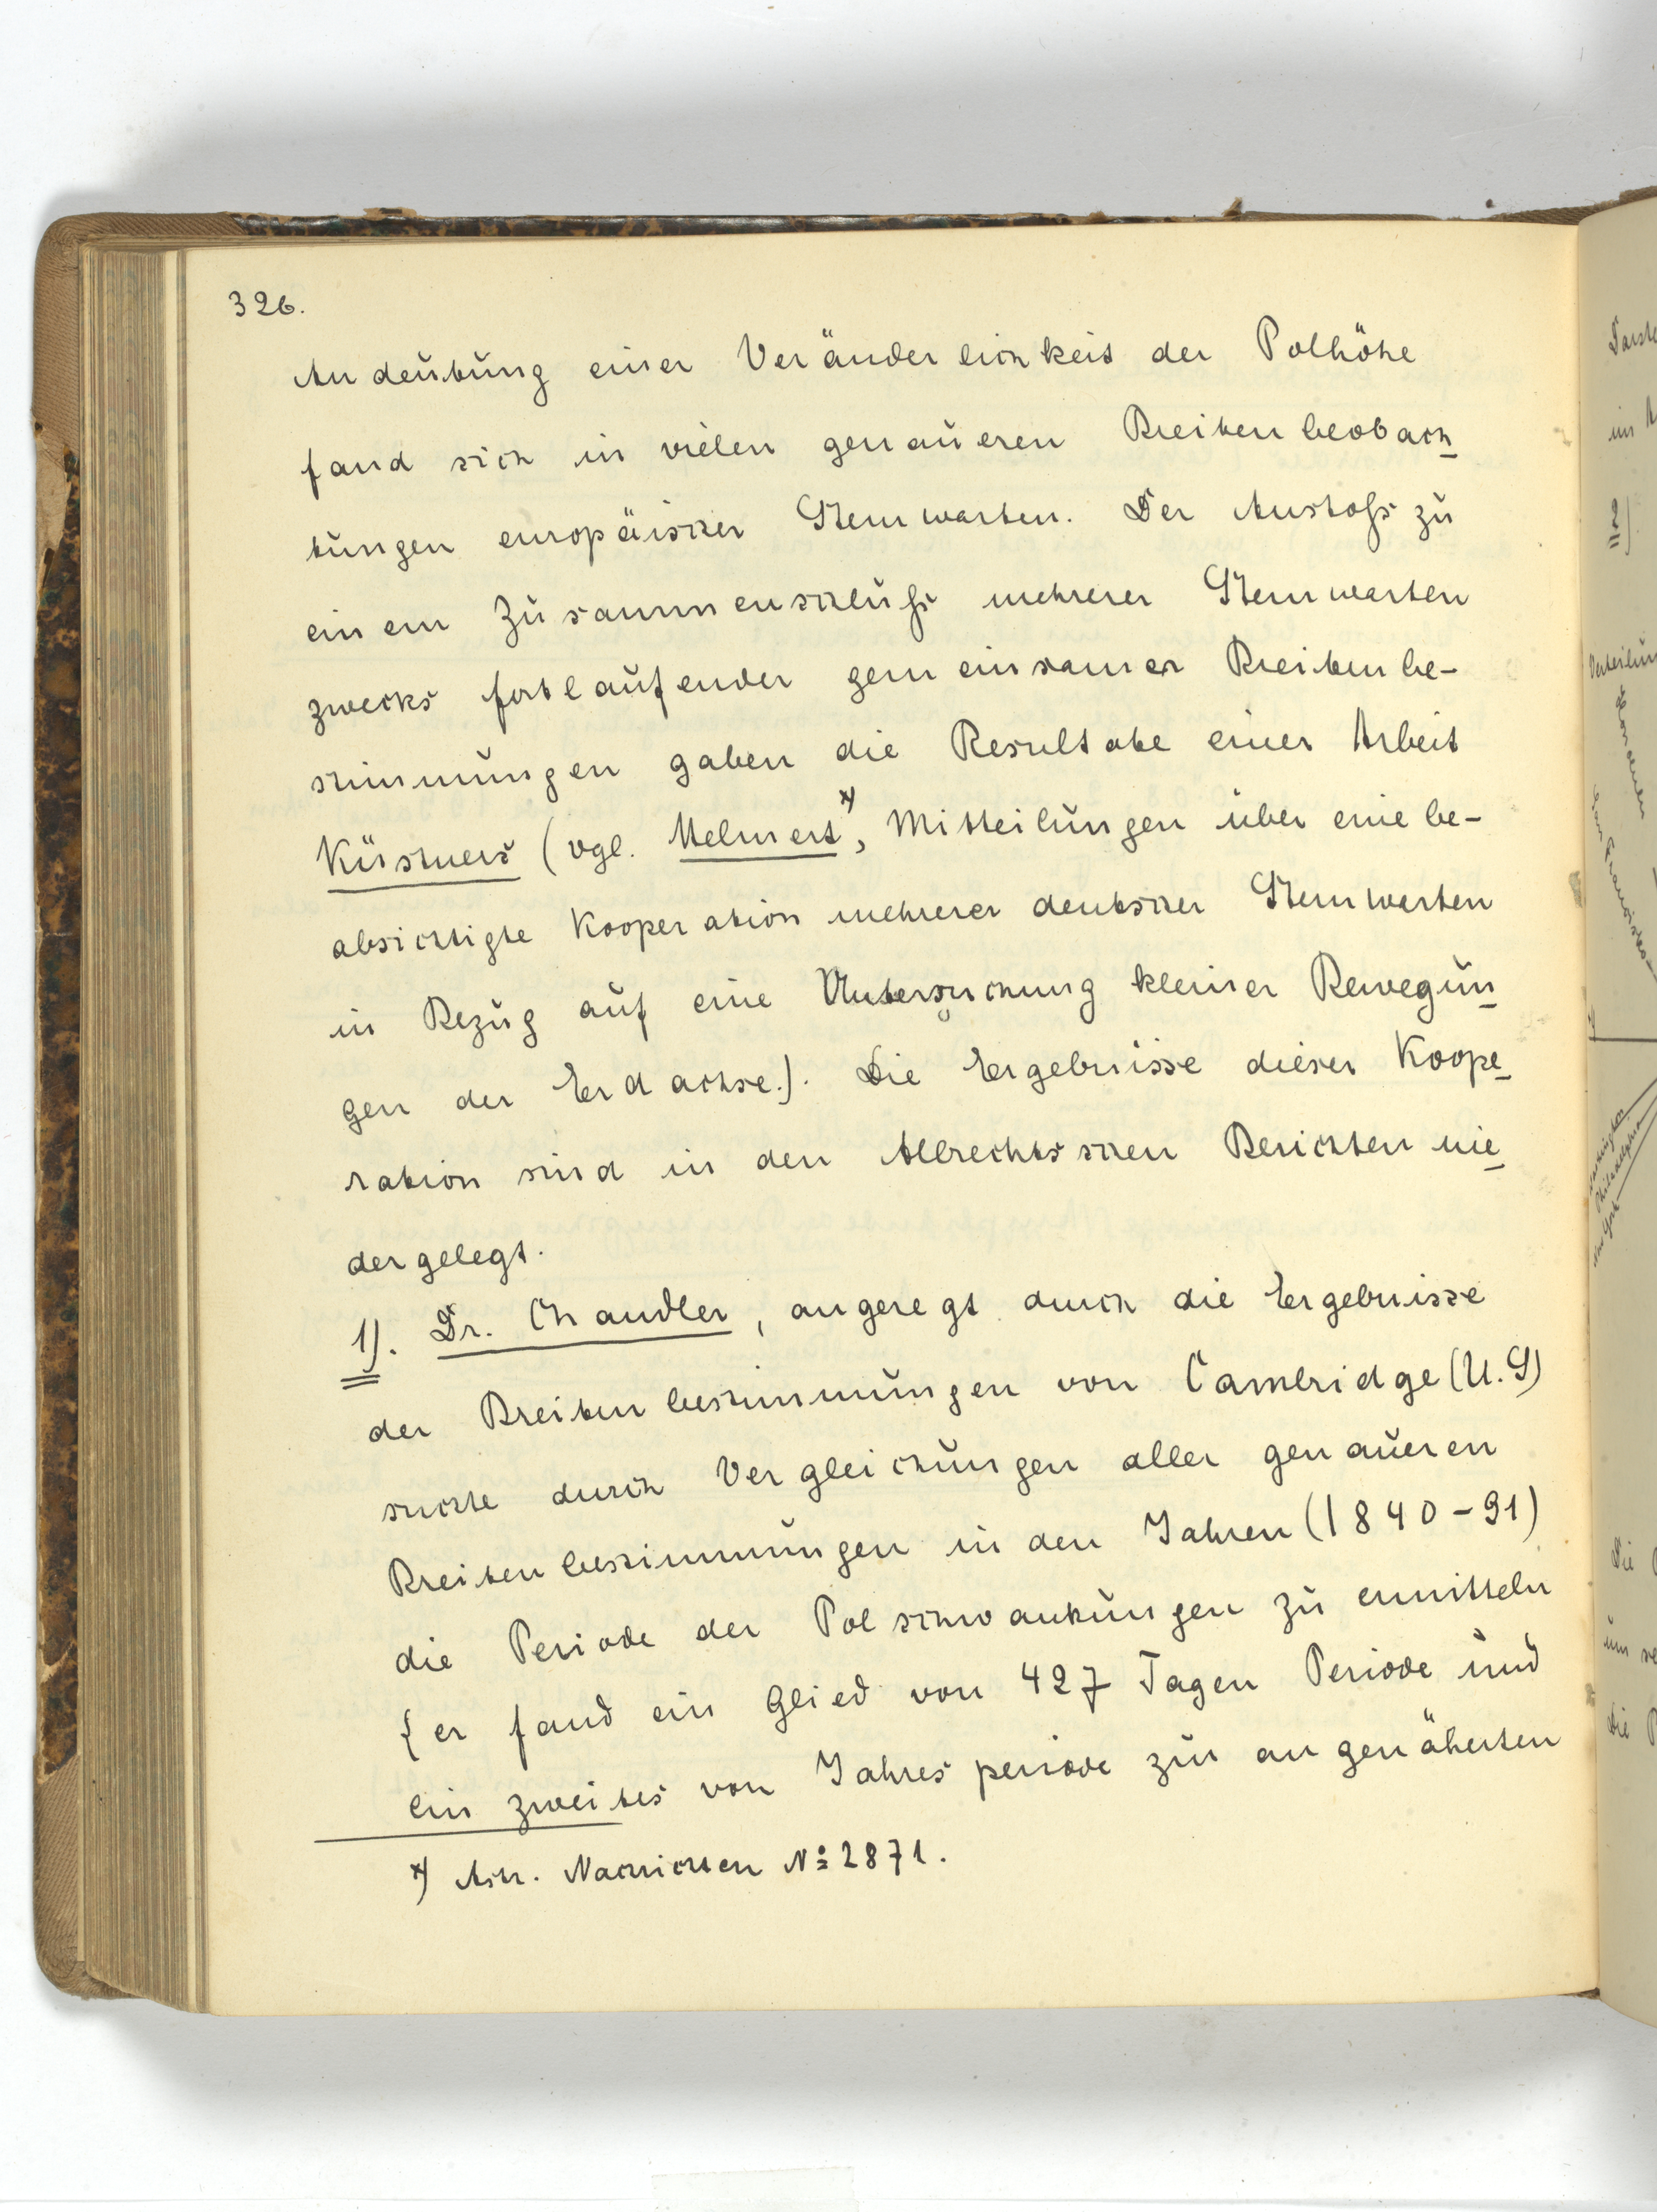 326.
Andeutung einer Veränderlichkeit der Polhöhe
fand sich in vielen genaueren Breitenbeobach-
tungen europäischer Sternwarten. Der Anstoß zu
einem Zusammenschluß mehrerer Sternwarten
zwecks fortlaufender gemeinsamer Breitenbe-
stimmungen gaben die Resultate einer Arbeit
Küstners (vgl. Helmert*), Mitteilungen über eine be-
absichtigte Kooperation mehrerer deutscher Sternwarten
in Bezug auf eine Untersuchung kleiner Bewegun-
gen der Erdachse.). Die Ergebnisse dieser Koope-
ration sind in den Albrechtsschen Berichten nie-
dergelegt.
1). Dr. Chandler, angeregt durch die Ergebnisse
der Breitenbestimmungen von Cambridge (U.S)
suchte durch Vergleichungen aller genaueren
Breitenbestimmungen in den Jahren (1840-91)
die Periode der Polschwankungen zu ermitteln
{er fand ein Glied von 427 Tagen Periode und
ein zweites von Jahresperiode zur angenäherten
*) Astr. Nachrichten No 2871.
Verteilun
Washington
Philadelphia
New York
San Francisco
2)
Die
um
die